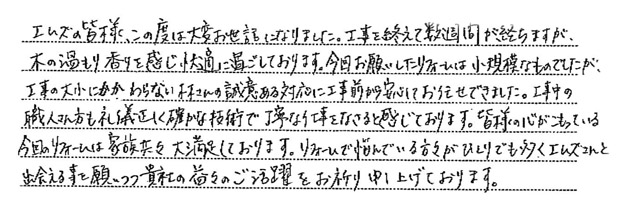 エムズの皆様、この度は大変お世話になりました。工事を終えて数週間が経ちますが、
木の温もり香りを感じ、快適に過ごしております。今回お願いしたリフォームは小規模なものでしたが、
工事の大小にかかわらない林さんの誠意ある対応に工事前から安心しておりませできました。工事中の
職人さん方も礼儀正しく確かな技術で丁寧な仕事をなさると感じております。皆様の心がこもっている
今回のリフォームは家族共々大満足しております。リフォームで悩んでいる方々がひとりでも多くエムズさんと
出会える事を願いつつ貴社の益々のご活躍をお祈り申し上げております。